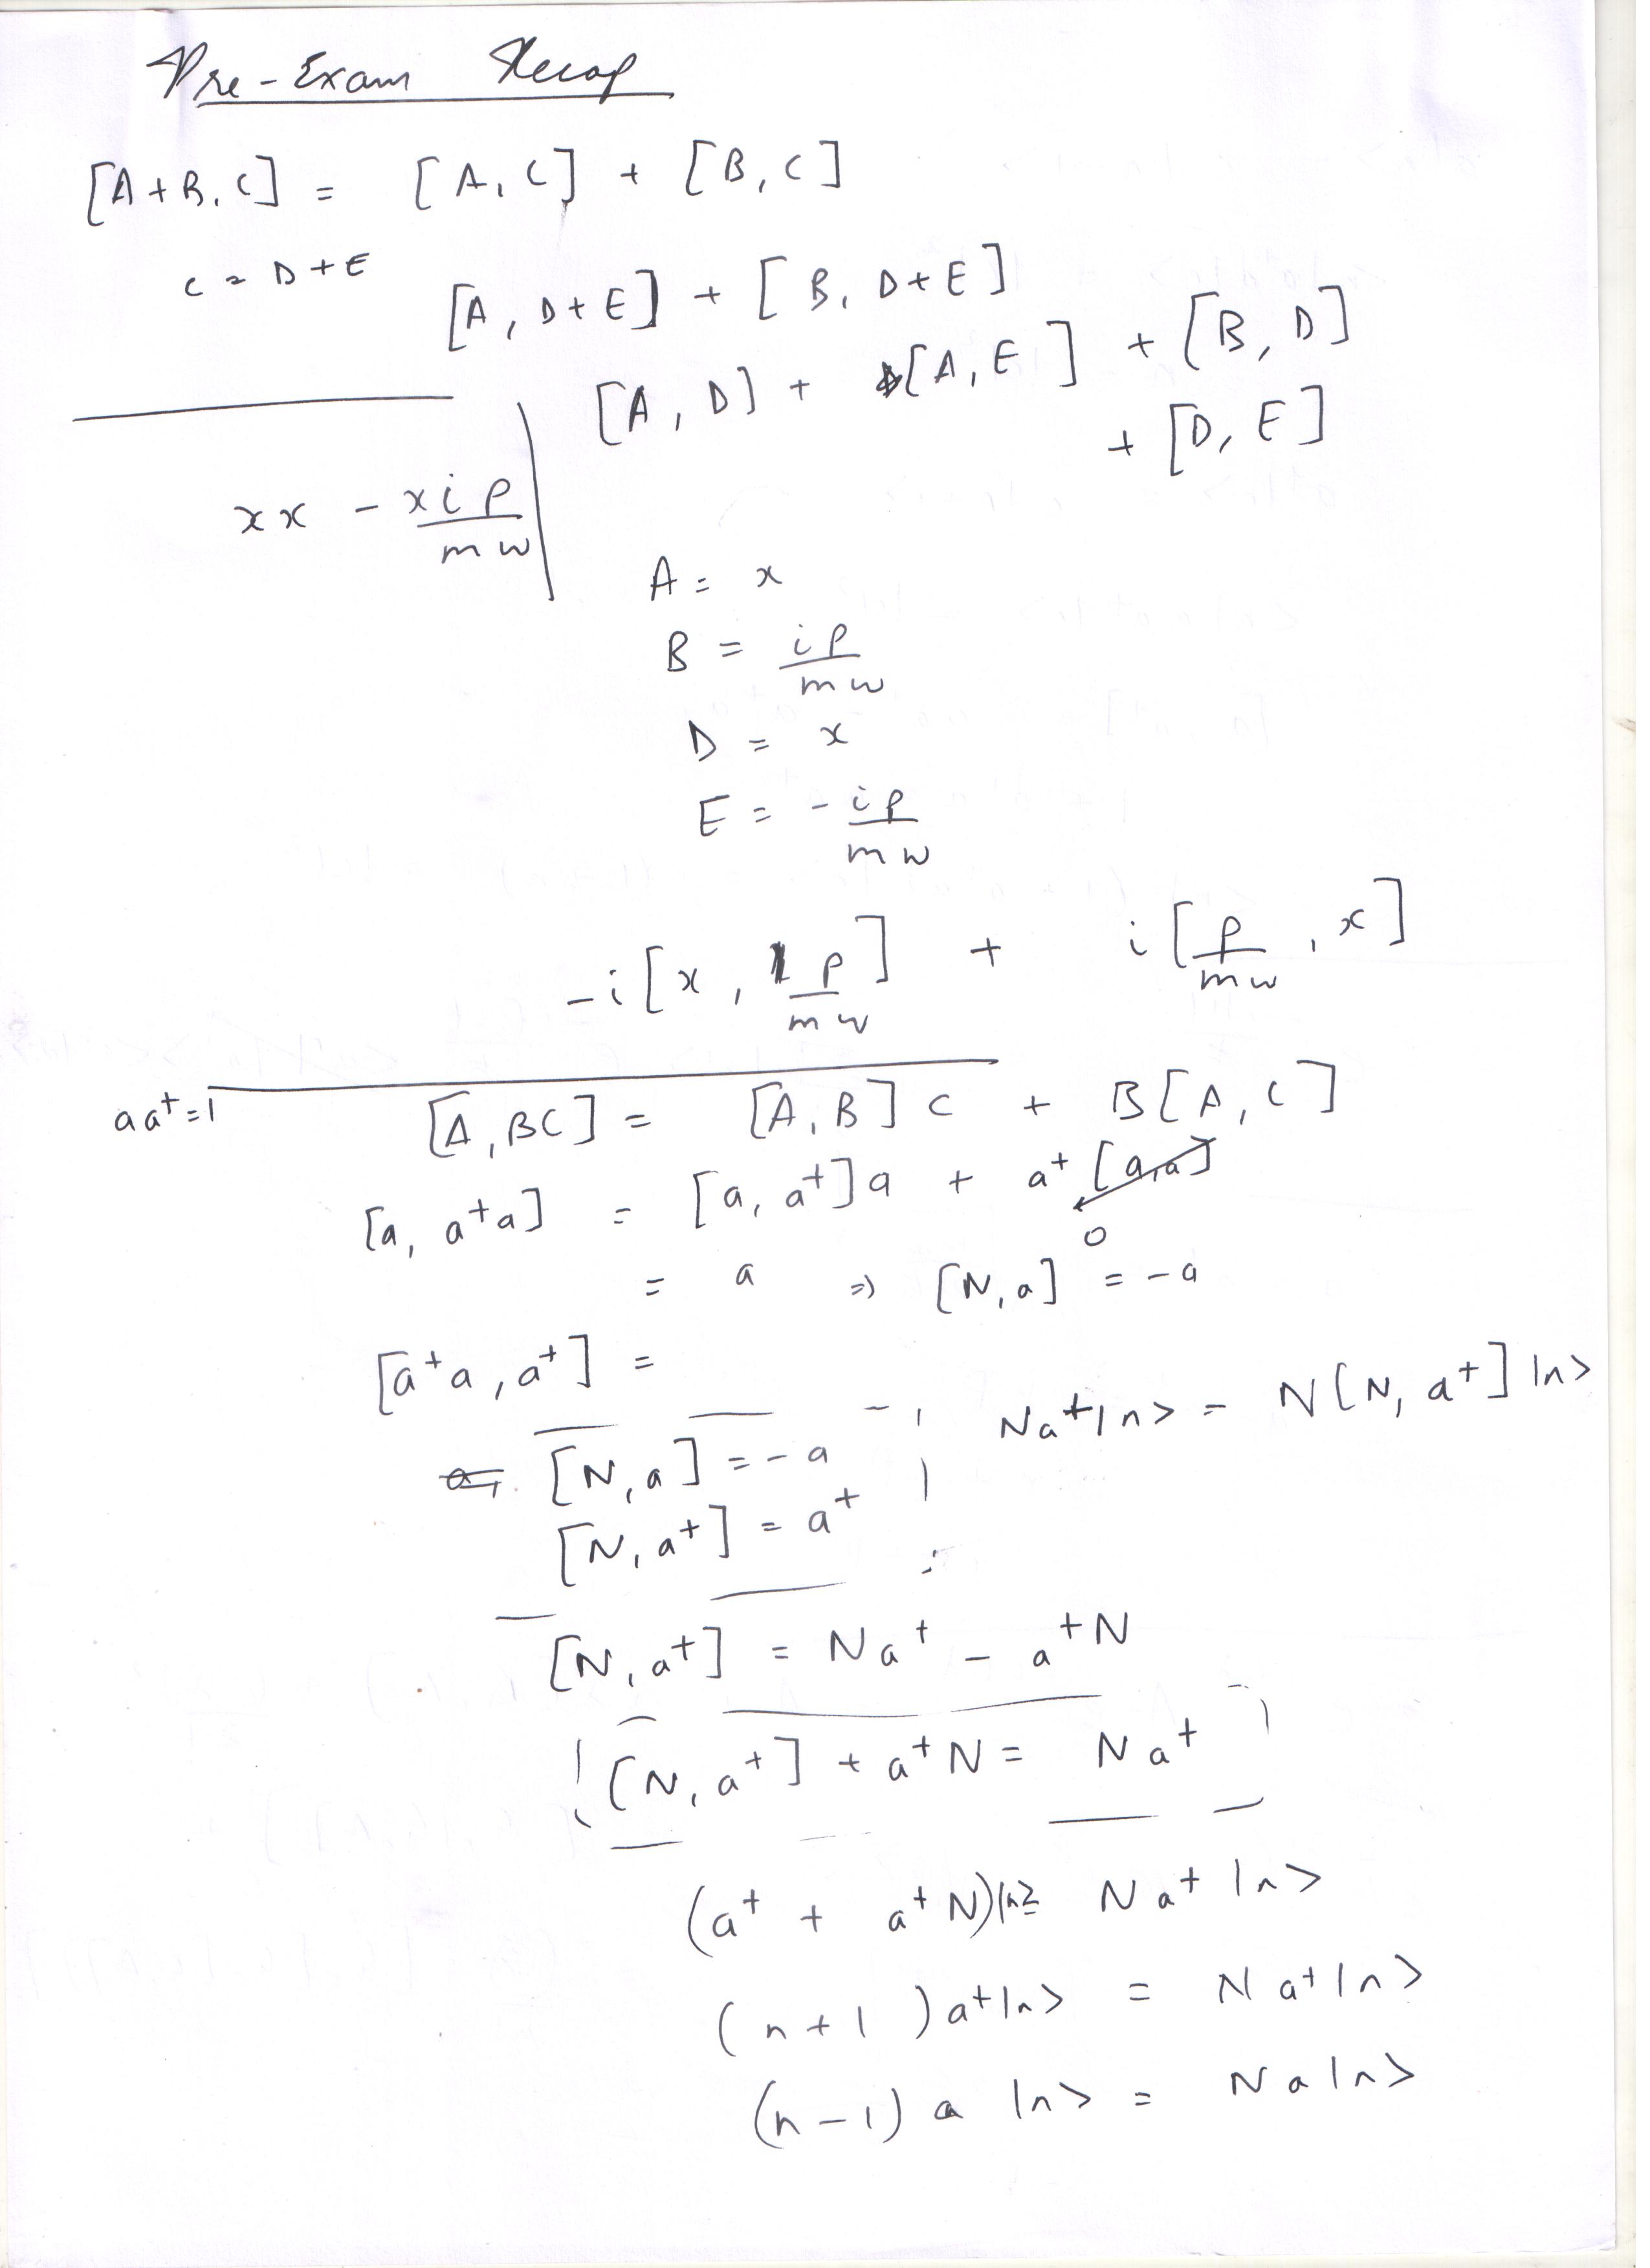 Pre-Exam Recap
[A+B, C] = [A, C] + [B, C]
C = D+E
[A, D+E] + [B, D+E]
[A, D] + [A, E] + [B, D]
+ [D, E]
xx - xip/mw
A = x
B = ip/mw
D = x
E = -ip/mw
-i[x, p/mw] + i[p/mw, x]
aa⁺=1
[A, BC] = [A, B]C + B[A, C]
[a, a⁺a] = [a, a⁺]a + a⁺[a,a]
0
= a ⇒ [N, a] = -a
[a⁺a, a⁺] =
Na⁺|n> = N[N, a⁺]|n>
[N, a] = -a
[N, a⁺] = a⁺
[N, a⁺] = Na⁺ - a⁺N
[N, a⁺] + a⁺N = Na⁺
(a⁺ + a⁺N)|n> = Na⁺|n>
(n+1)a⁺|n> = Na⁺|n>
(n-1) a |n> = Na|n>